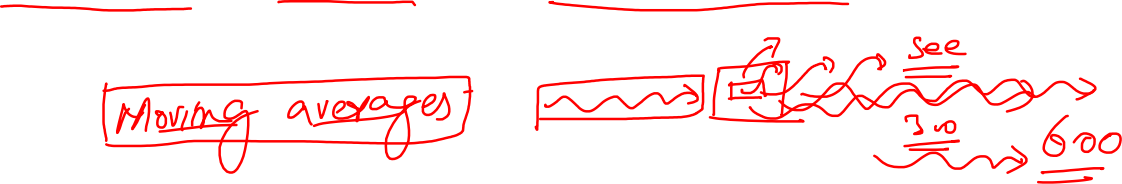 Moving averages see
300 600